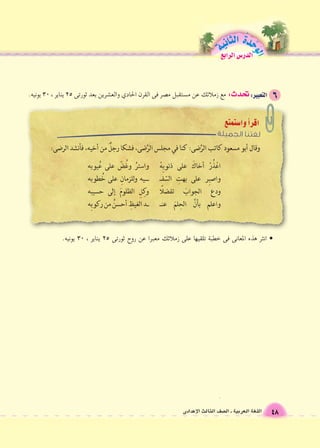 الوحدة الثانية
الدرس الرابع
٦ التعبير: تحدث، مع زملائك عن مستقبل مصر فى القرن الحادي والعشرين بعد ثورتى ٢٥ يناير، ٣٠ يونيه.
اقرأ واستمتع
لغتنا الجميلة
وقال أبو مسعود كاتب الرَّضى: كنا في مجلس الرَّضى، فشكا رجلٌ من أخيه، فأنشد الرضى:
اعْذُرْ أخاكَ على ذنوبِهْ واسترْ وغُضَّ على عُيوبِه
واصبِر على بهتِ السَّفـ ـيه وللزمانِ على خُطوبِه
ودعِ الجوابَ تفضلاً وكلِ الظلومَ إلى حسيبِه
واعلم بأنَّ الحِلمَ عنـ ـد الغيظِ أحسنُ من ركوبِه
• انثر هذه المعانى فى خطبة تلقيها على زملائك معبرا عن روح ثورتى ٢٥ يناير ، ٣٠ يونيه.
٤٨ اللغة العربية - الصف الثالث الإعدادى